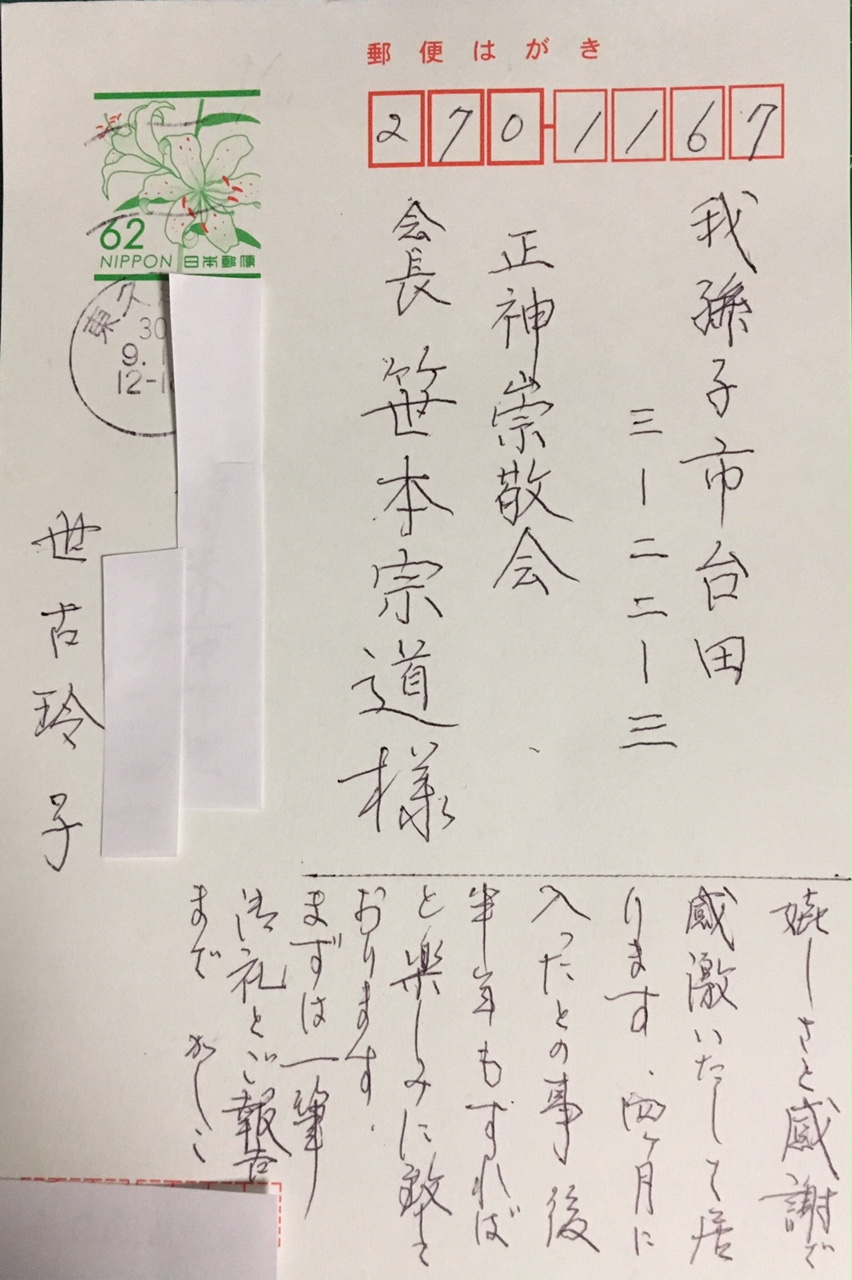 郵便はがき
270-1167
我孫子市台田
三ー二二ー三
正神崇敬会
会長 笹本宗道様
62
NIPPON 日本郵便
東久
30
9.
12-1
世古玲子
嬉しさと感謝で
感激いたして居
ります、四ヶ月に
入ったとの事後
半年もすれば
と楽しみに致して
おります.
まずは一筆
御礼とご報告
まで かしこ